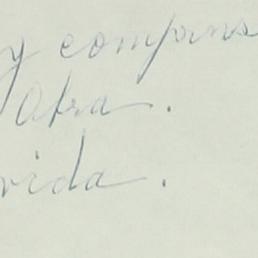 y compras
Otra.
vida.